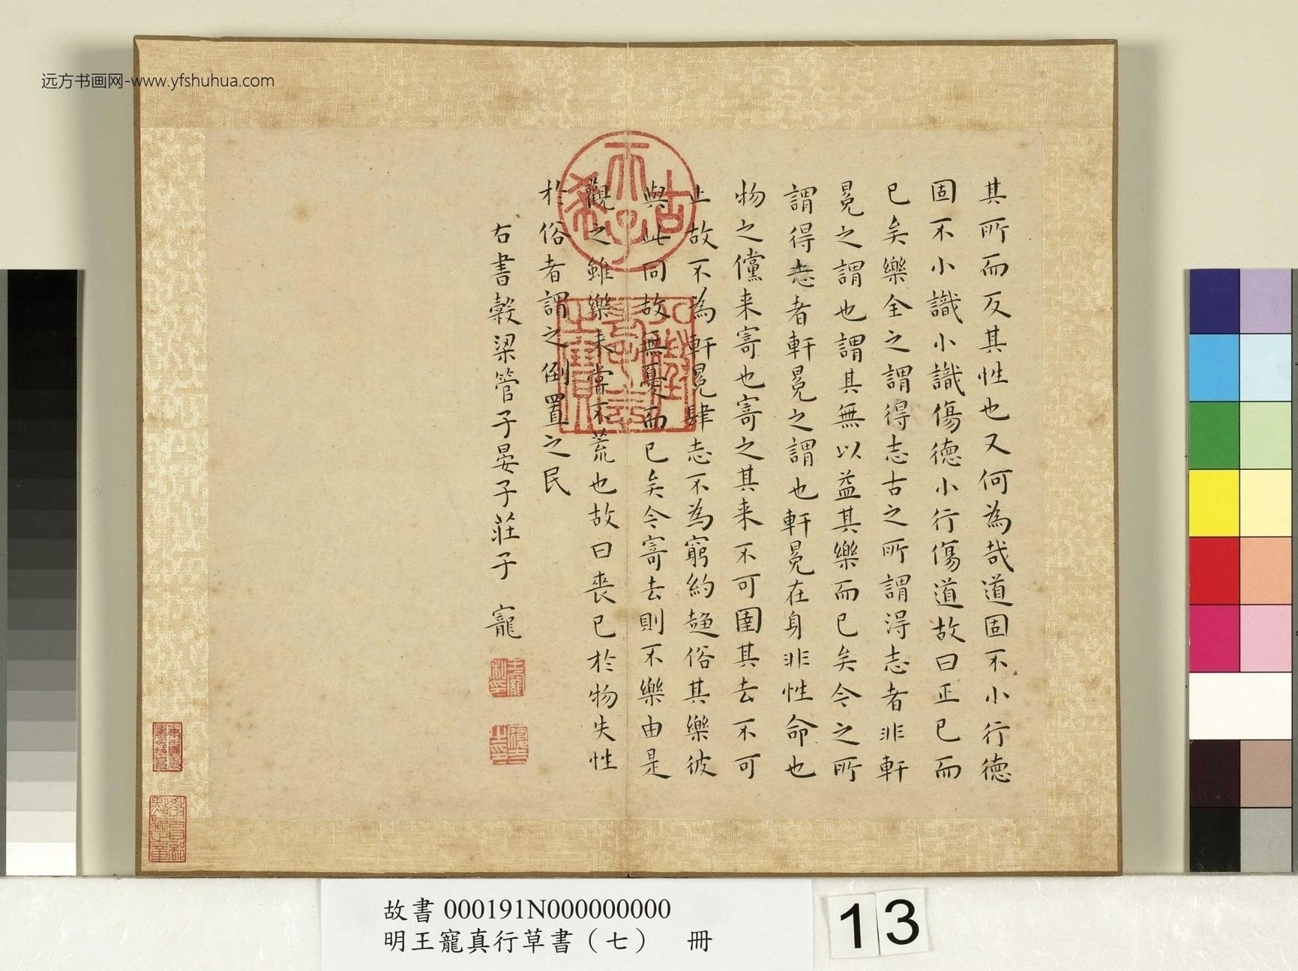 远方书画网-www.yfshuhua.com
其所而反其性也又何為哉道固不小行德
固不小識小識傷德小行傷道故曰正己而
已矣樂全之謂得志古之所謂得志者非軒
冕之謂也謂其無以益其樂而已矣今之所
謂得志者軒冕之謂也軒冕在身非性命也
物之儻来寄也寄之其来不可圉其去不可
止故不為軒冕肆志不為窮約趨俗其樂彼
與此同故無憂而已矣今寄去則不樂由是
觀之雖樂未嘗不荒也故曰喪己於物失性
於俗者謂之倒置之民
右書穀梁管子晏子莊子 寵
古稀天子
八徵耄念之寶
故書000191N000000000
明王寵真行草書（七） 冊
13